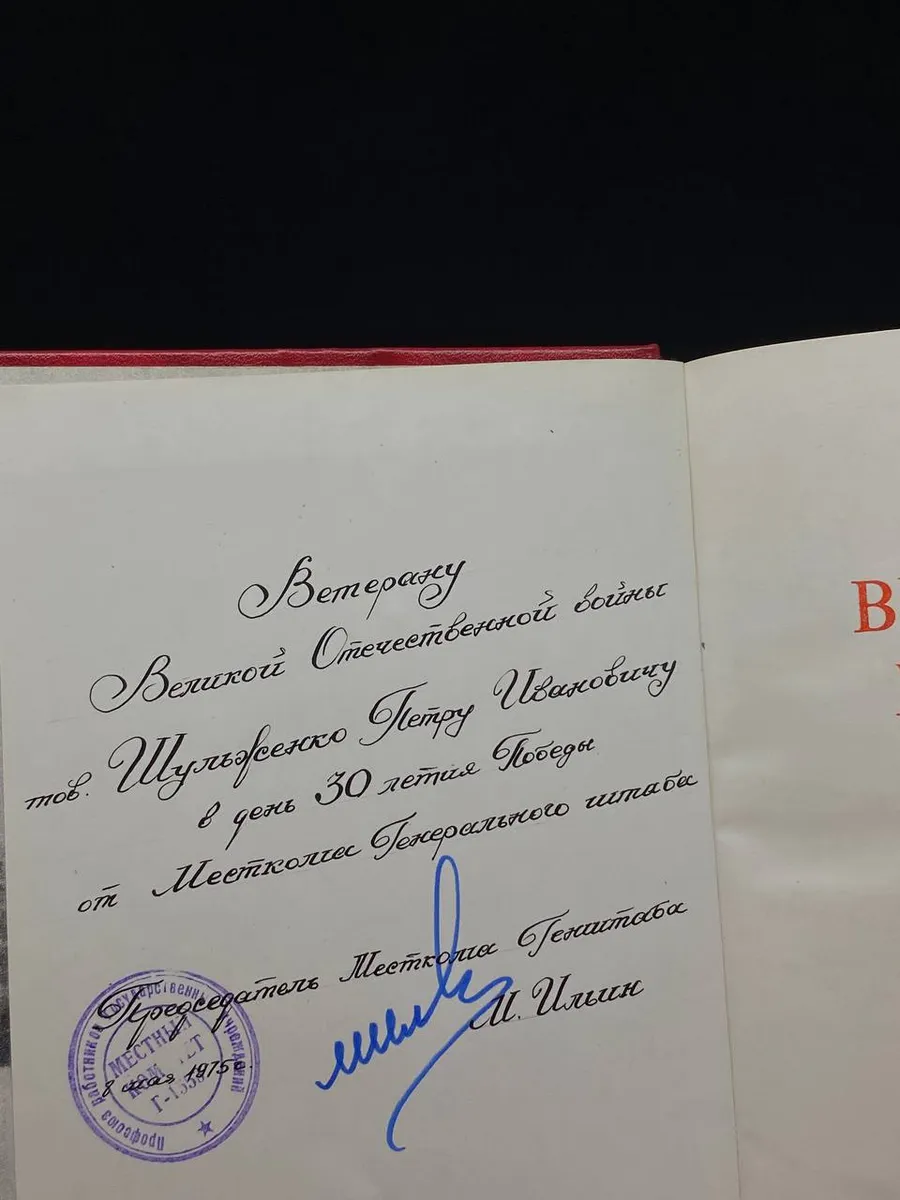 Ветерану
Великой Отечественной войны
тов. Шульженко Петру Ивановичу
в день 30 летия Победы
от Месткома Генерального штаба
Председатель Месткома Генштаба
М. Ильин
8 мая 1975г.
Профсоюз работников государственных учреждений
МЕСТНЫЙ
КОМИТЕТ
В